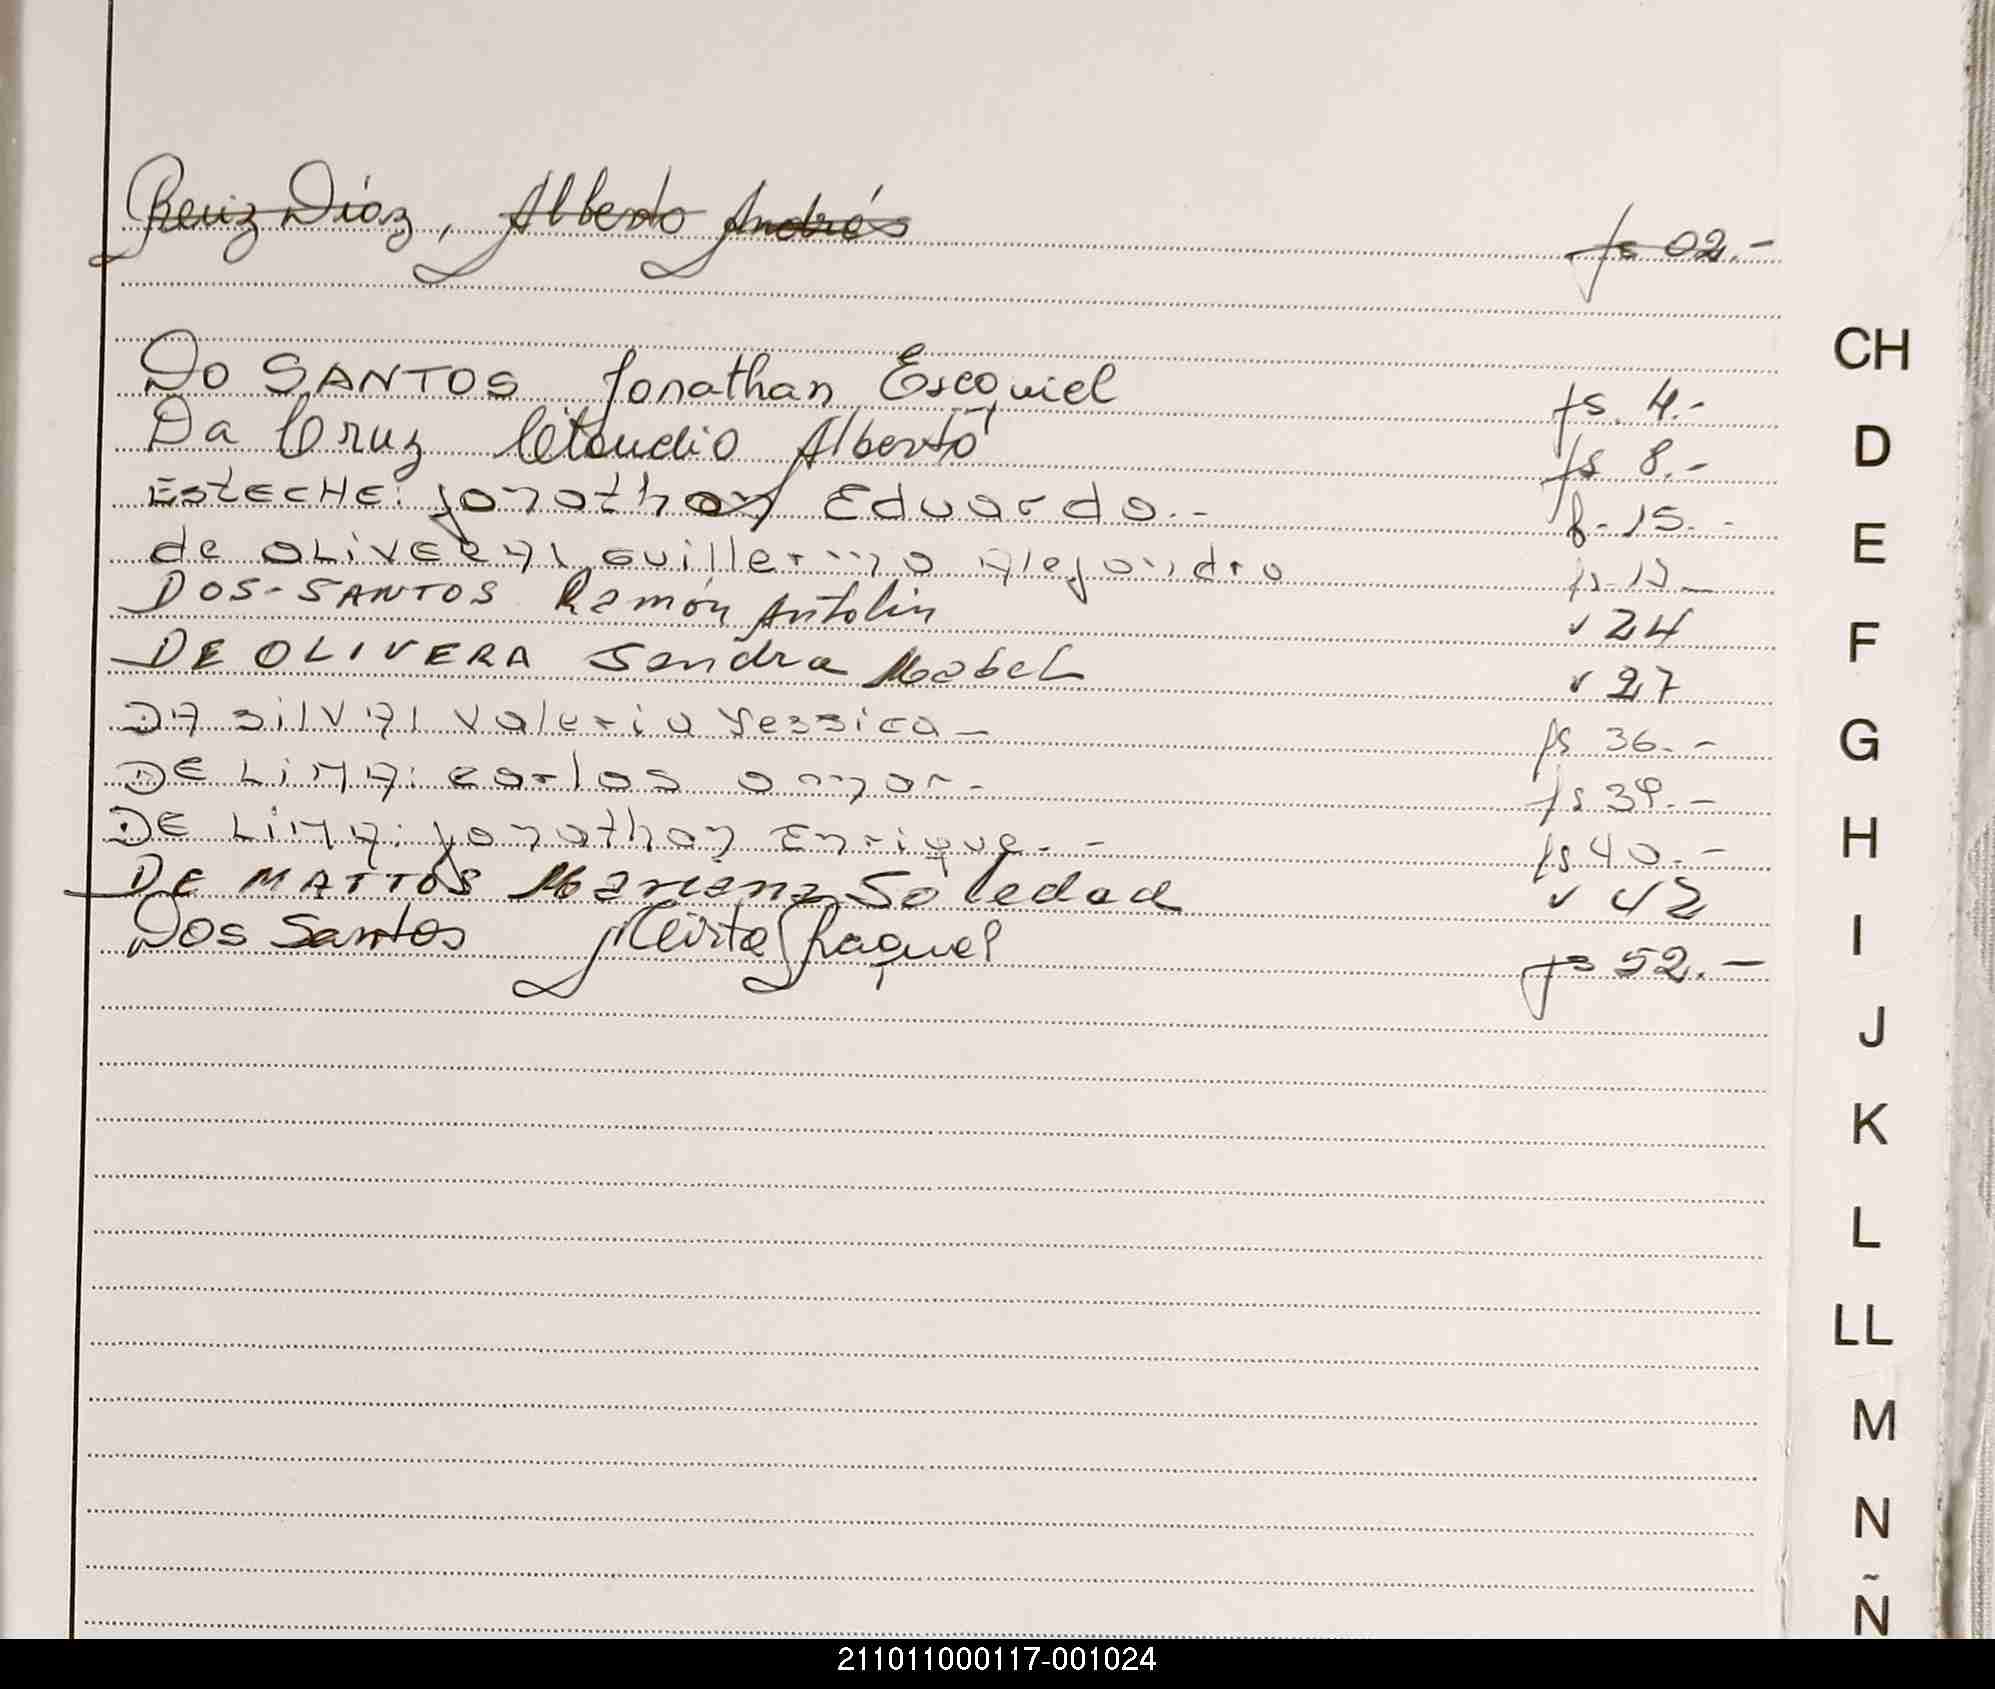 Ruiz Díaz, Alberto Andrés fs 02.-
DO SANTOS Jonathan Escequiel fs. 4.-
Da Cruz Claudio Alberto fs 8.-
ESTECHE: jonathan Eduardo.- f. 15.-
de OLIVERA: Guillermo Alejandro fs.
DOS-SANTOS Ramón Antolin v 24
DE OLIVERA Sandra Mabel v 27
DA SILVA: Valeria Yessica - fs 36.-
DE LIMA: carlos omar.- fs 39.-
DE LIMA: jonathan Enrique.- fs 40.-
DE MATTOS Mariana Soledad v 42
Dos Santos Mirta Raquel fs 52.-
CH
D
E
F
G
H
I
J
K
L
LL
M
N
Ñ
211011000117-001024